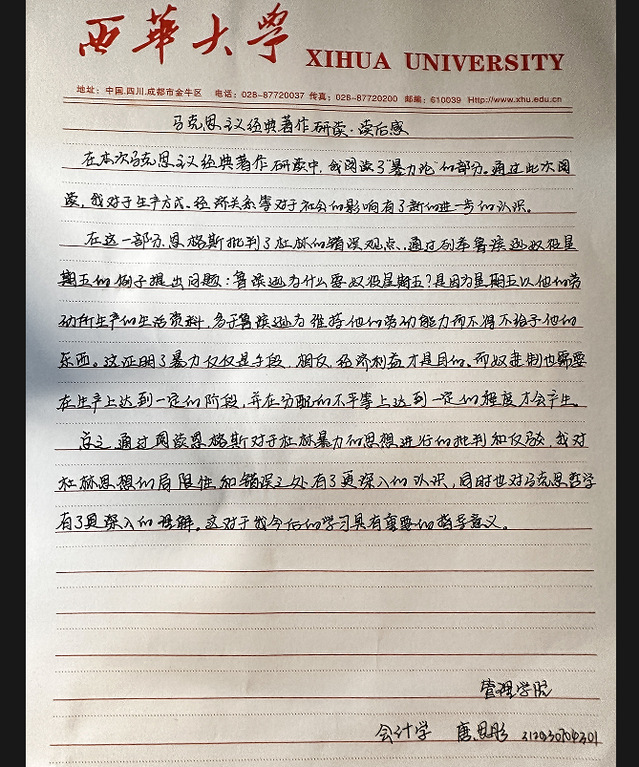 西華大学 XIHUA UNIVERSITY
地址：中国.四川.成都市金牛区 电话：028-87720037 传真：028-87720200 邮编：610039 Http://www.xhu.edu.cn
马克思主义经典著作研读·读后感
在本次马克思主义经典著作研读中，我阅读了"暴力论"的部分。通过此次阅
读，我对于生产方式、经济关系等对于社会的影响有了新的进一步的认识。
在这一部分，恩格斯批判了杜林的错误观点，通过列举鲁滨逊奴役星
期五的例子提出问题：鲁滨逊为什么要奴役星期五？是因为星期五以他的劳
动所生产的生活资料，多于鲁滨逊为维持他的劳动能力而不得不给予他的
东西。这证明了暴力仅仅是手段，相反，经济利益才是目的。而奴隶制也需要
在生产上达到一定的阶段，并在分配的不平等上达到一定的程度才会产生。
总之，通过阅读恩格斯对于杜林暴力的思想进行的批判和反驳，我对
杜林思想的局限性和错误之处有了更深入的认识，同时也对马克思哲学
有了更深入的理解。这对于我今后的学习具有重要的指导意义。
管理学院
会计学 唐思彤